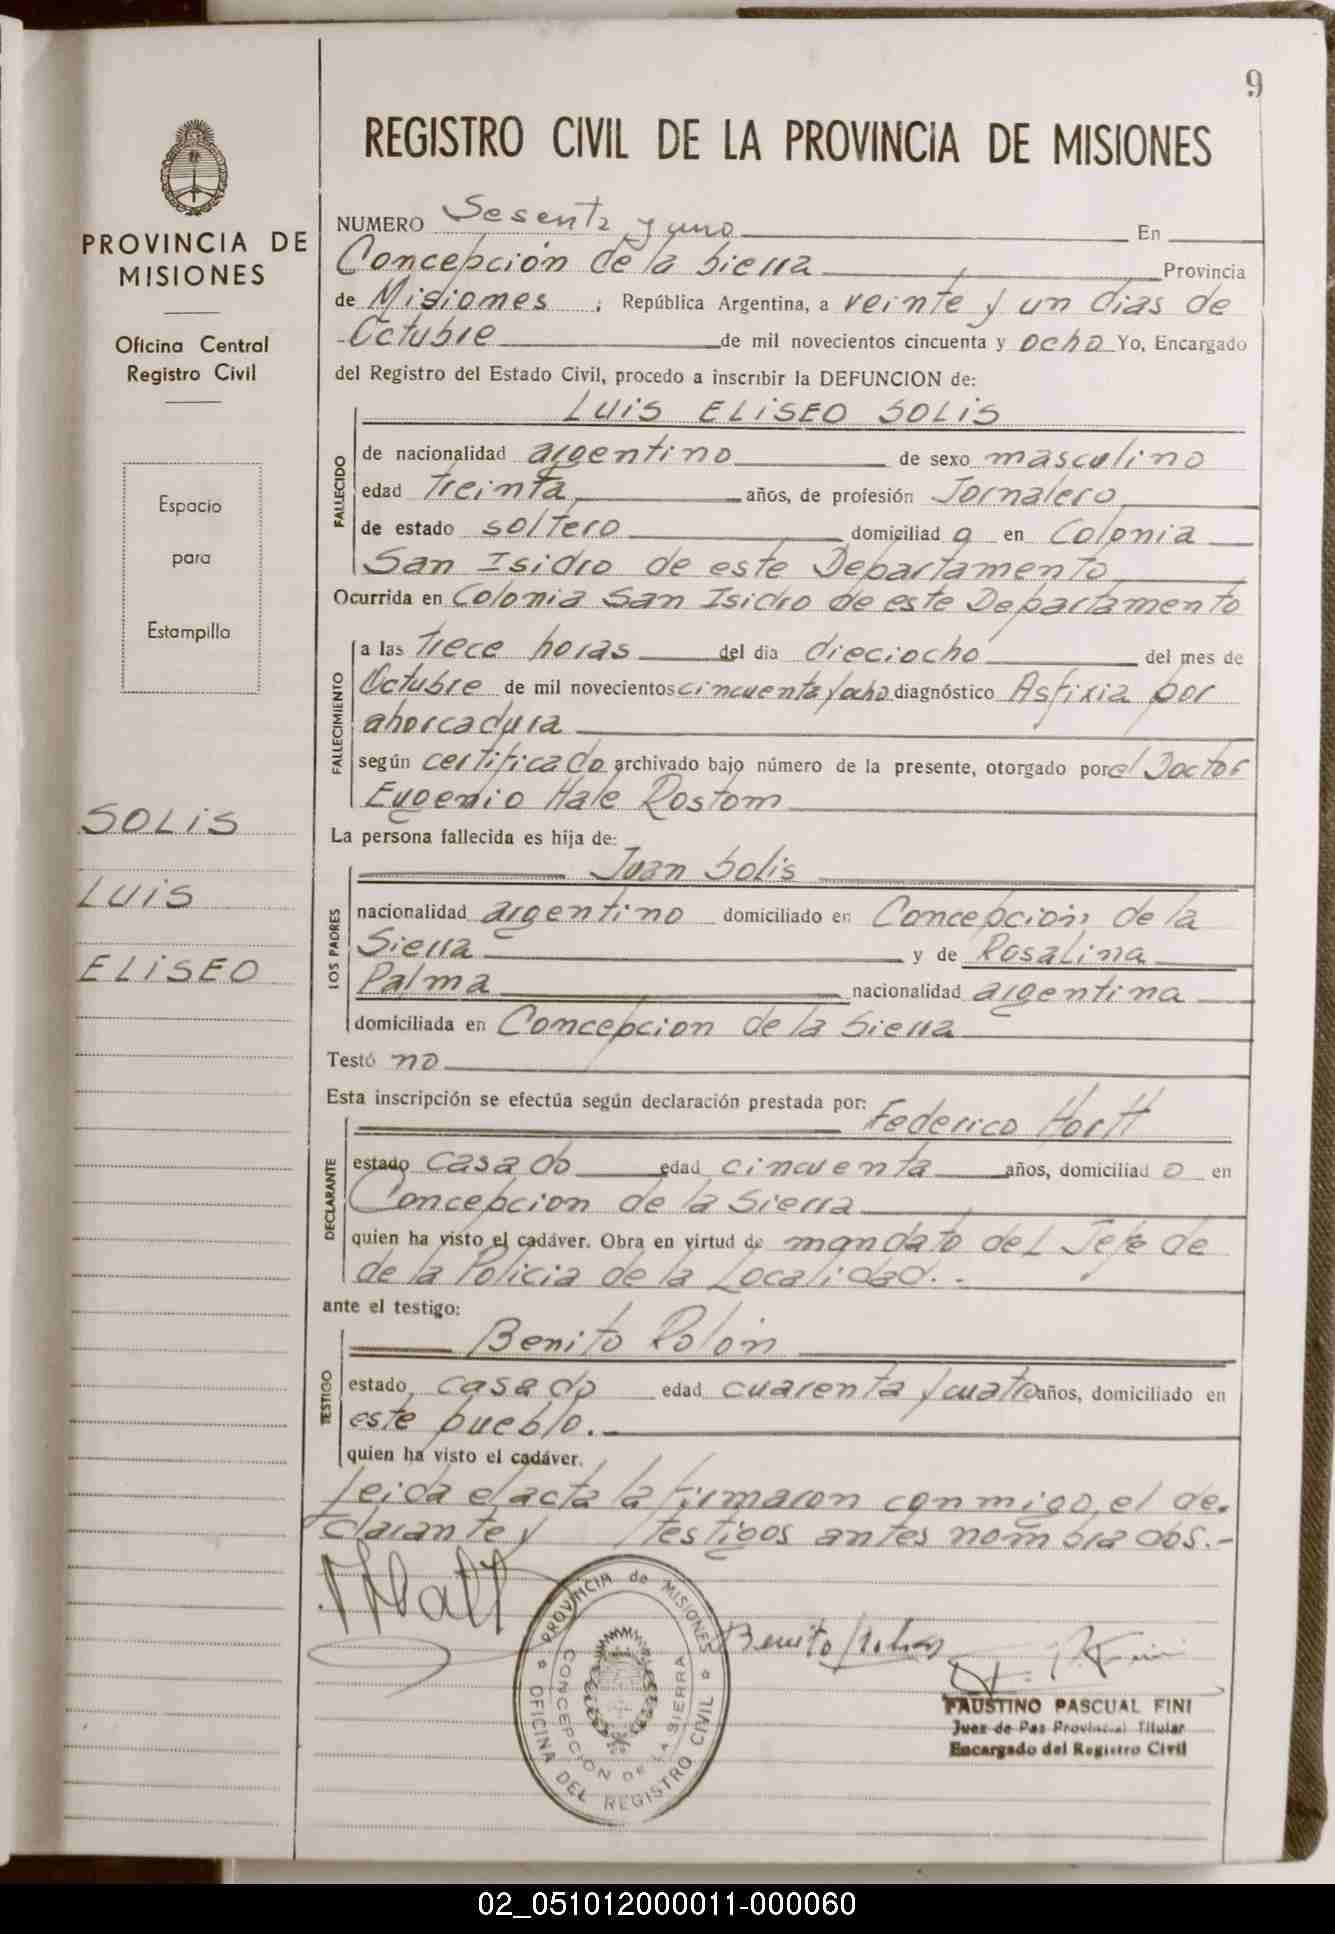 9
REGISTRO CIVIL DE LA PROVINCIA DE MISIONES
PROVINCIA DE
MISIONES
Oficina Central
Registro Civil
Espacio
para
Estampilla
SOLIS
LUIS
ELISEO
NUMERO Sesenta y uno En
Concepción de la Sierra Provincia
de Misiones ; República Argentina, a veinte y un dias de
Octubre de mil novecientos cincuenta y ocho Yo, Encargado
del Registro del Estado Civil, procedo a inscribir la DEFUNCION de:
LUIS ELISEO SOLIS
FALLECIDO
de nacionalidad argentino de sexo masculino
edad treinta años, de profesión Jornalero
de estado soltero domiciliad o en Colonia
San Isidro de este Departamento
Ocurrida en Colonia San Isidro de este Departamento
FALLECIMIENTO
a las trece horas del dia dieciocho del mes de
Octubre de mil novecientos cincuenta y ocho diagnóstico Asfixia por
ahorcadura
según certificado archivado bajo número de la presente, otorgado por el Doctor
Eugenio Hale Rostom
La persona fallecida es hija de:
Juan Solis
LOS PADRES
nacionalidad argentino domiciliado en Concepción de la
Sierra y de Rosalina
Palma nacionalidad argentina
domiciliada en Concepcion de la Sierra
Testó no
Esta inscripción se efectúa según declaración prestada por:
Federico Hortt
DECLARANTE
estado casado edad cincuenta años, domiciliad o en
Concepcion de la Sierra
quien ha visto el cadáver. Obra en virtud de mandato del Jefe de
de la Policia de la Localidad.-
ante el testigo:
Benito Rolón
TESTIGO
estado casado edad cuarenta y cuatro años, domiciliado en
este pueblo.
quien ha visto el cadáver.
Leida el acta la firmaron conmigo, el de-
clarante y testigos antes nombrados.-
PROVINCIA de MISIONES
OFICINA DEL REGISTRO CIVIL
CONCEPCION DE LA SIERRA
Benito Rolon
FAUSTINO PASCUAL FINI
Juez de Paz Provincial Titular
Encargado del Registro Civil
02_051012000011-000060